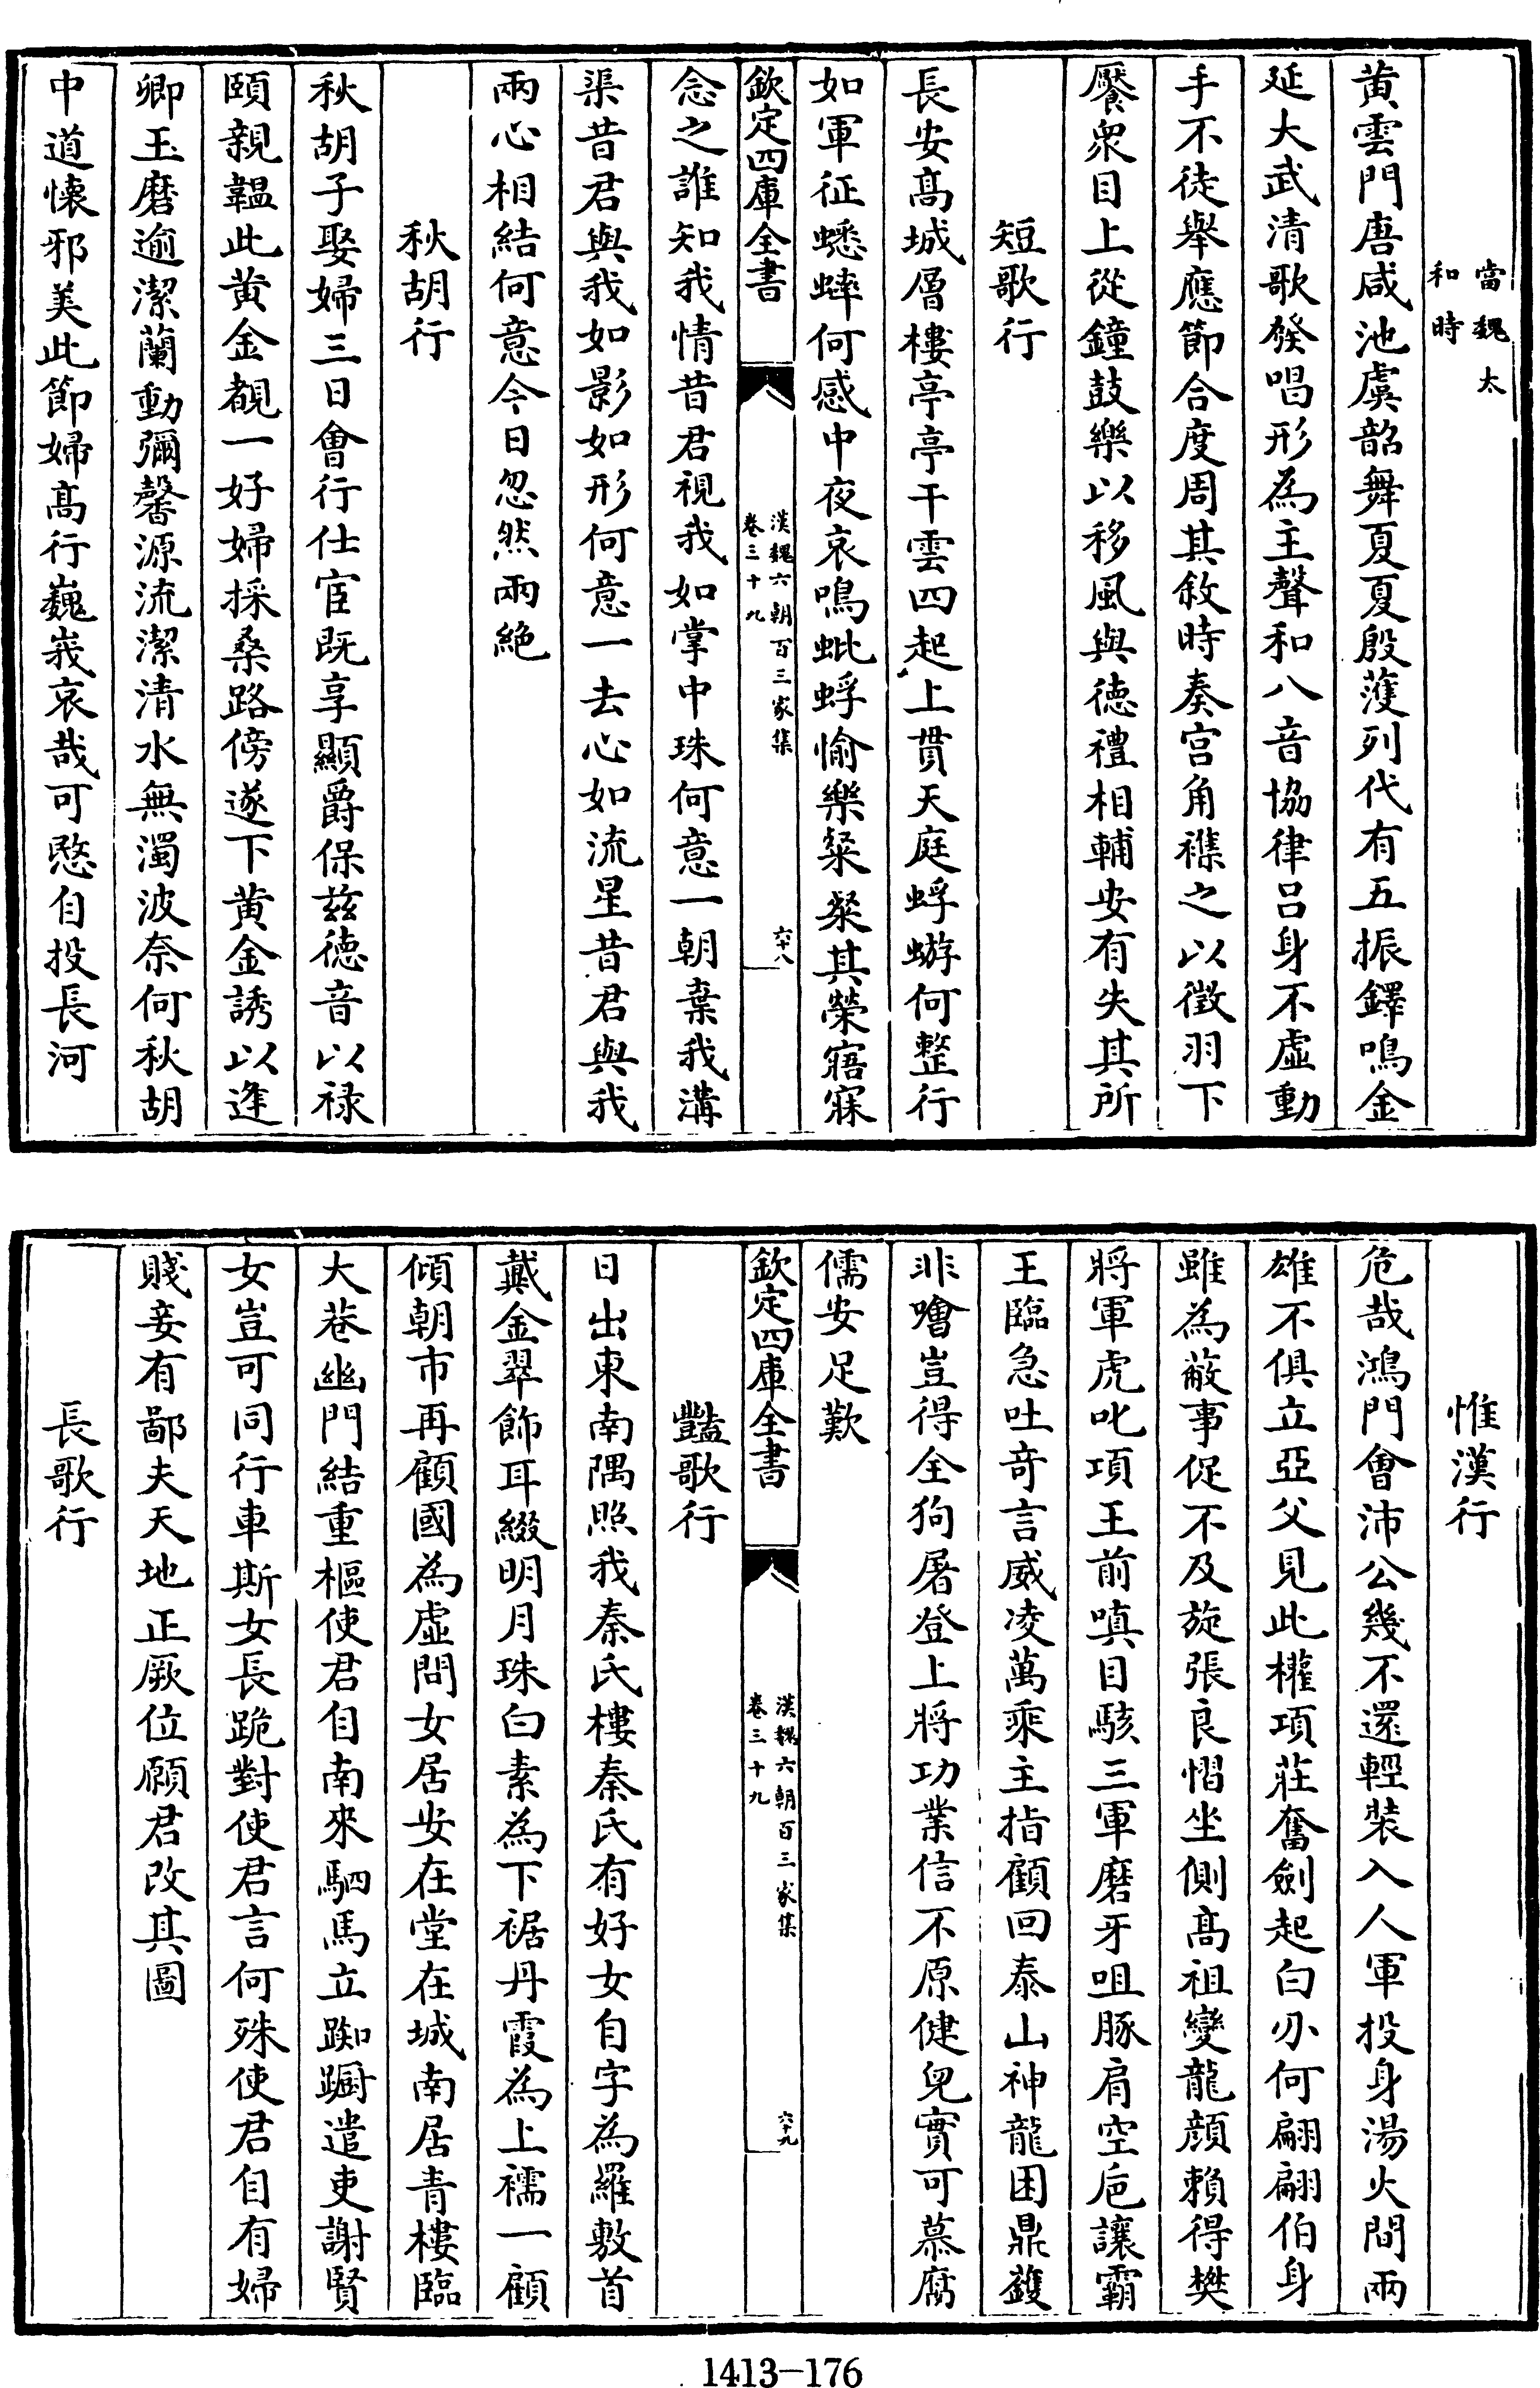 當魏太
和時
黄雲門唐咸池虞韶舞夏夏殷濩列代有五振鐸鳴金
延大武清歌發唱形為主聲和八音協律吕身不虚動
手不徒舉應節合度周其敘時奏宫角襍之以徵羽下
饜衆目上從鐘鼓樂以移風與徳禮相輔安有失其所
短歌行
長安髙城層樓亭亭干雲四起上貫天庭蜉蝣何整行
如軍征蟋蟀何感中夜哀鳴蚍蜉愉樂粲粲其榮寤寐
欽定四庫全書
漢魏六朝百三家集
卷三十九
六十八
念之誰知我情昔君視我如掌中珠何意一朝棄我溝
渠昔君與我如影如形何意一去心如流星昔君與我
兩心相結何意今日忽然兩絶
秋胡行
秋胡子娶婦三日會行仕宦既享顯爵保兹徳音以禄
頤親韞此黄金覩一好婦採桑路傍遂下黄金誘以逢
卿玉磨逾潔蘭動彌馨源流潔清水無濁波奈何秋胡
中道懐邪美此節婦髙行巍峩哀哉可愍自投長河
惟漢行
危哉鴻門會沛公幾不還輕装入人軍投身湯火間兩
雄不俱立亞父見此權項莊奮劒起白刃何翩翩伯身
雖為蔽事促不及旋張良慴坐側髙祖變龍顔賴得樊
將軍虎叱項王前嗔目駭三軍磨牙咀豚肩空巵讓霸
王臨急吐竒言威凌萬乘主指顧回泰山神龍困鼎鑊
非噲豈得全狗屠登上將功業信不原健兒實可慕腐
儒安足歎
欽定四庫全書
漢魏六朝百三家集
卷三十九
六十九
豔歌行
日出東南隅照我秦氏樓秦氏有好女自字為羅敷首
戴金翠飾耳綴明月珠白素為下裾丹霞為上襦一顧
傾朝市再顧國為虚問女居安在堂在城南居青樓臨
大巷幽門結重樞使君自南來駟馬立踟蹰遣吏謝賢
女豈可同行車斯女長跪對使君言何殊使君自有婦
賤妾有鄙夫天地正厥位願君改其圖
長歌行
1413-176